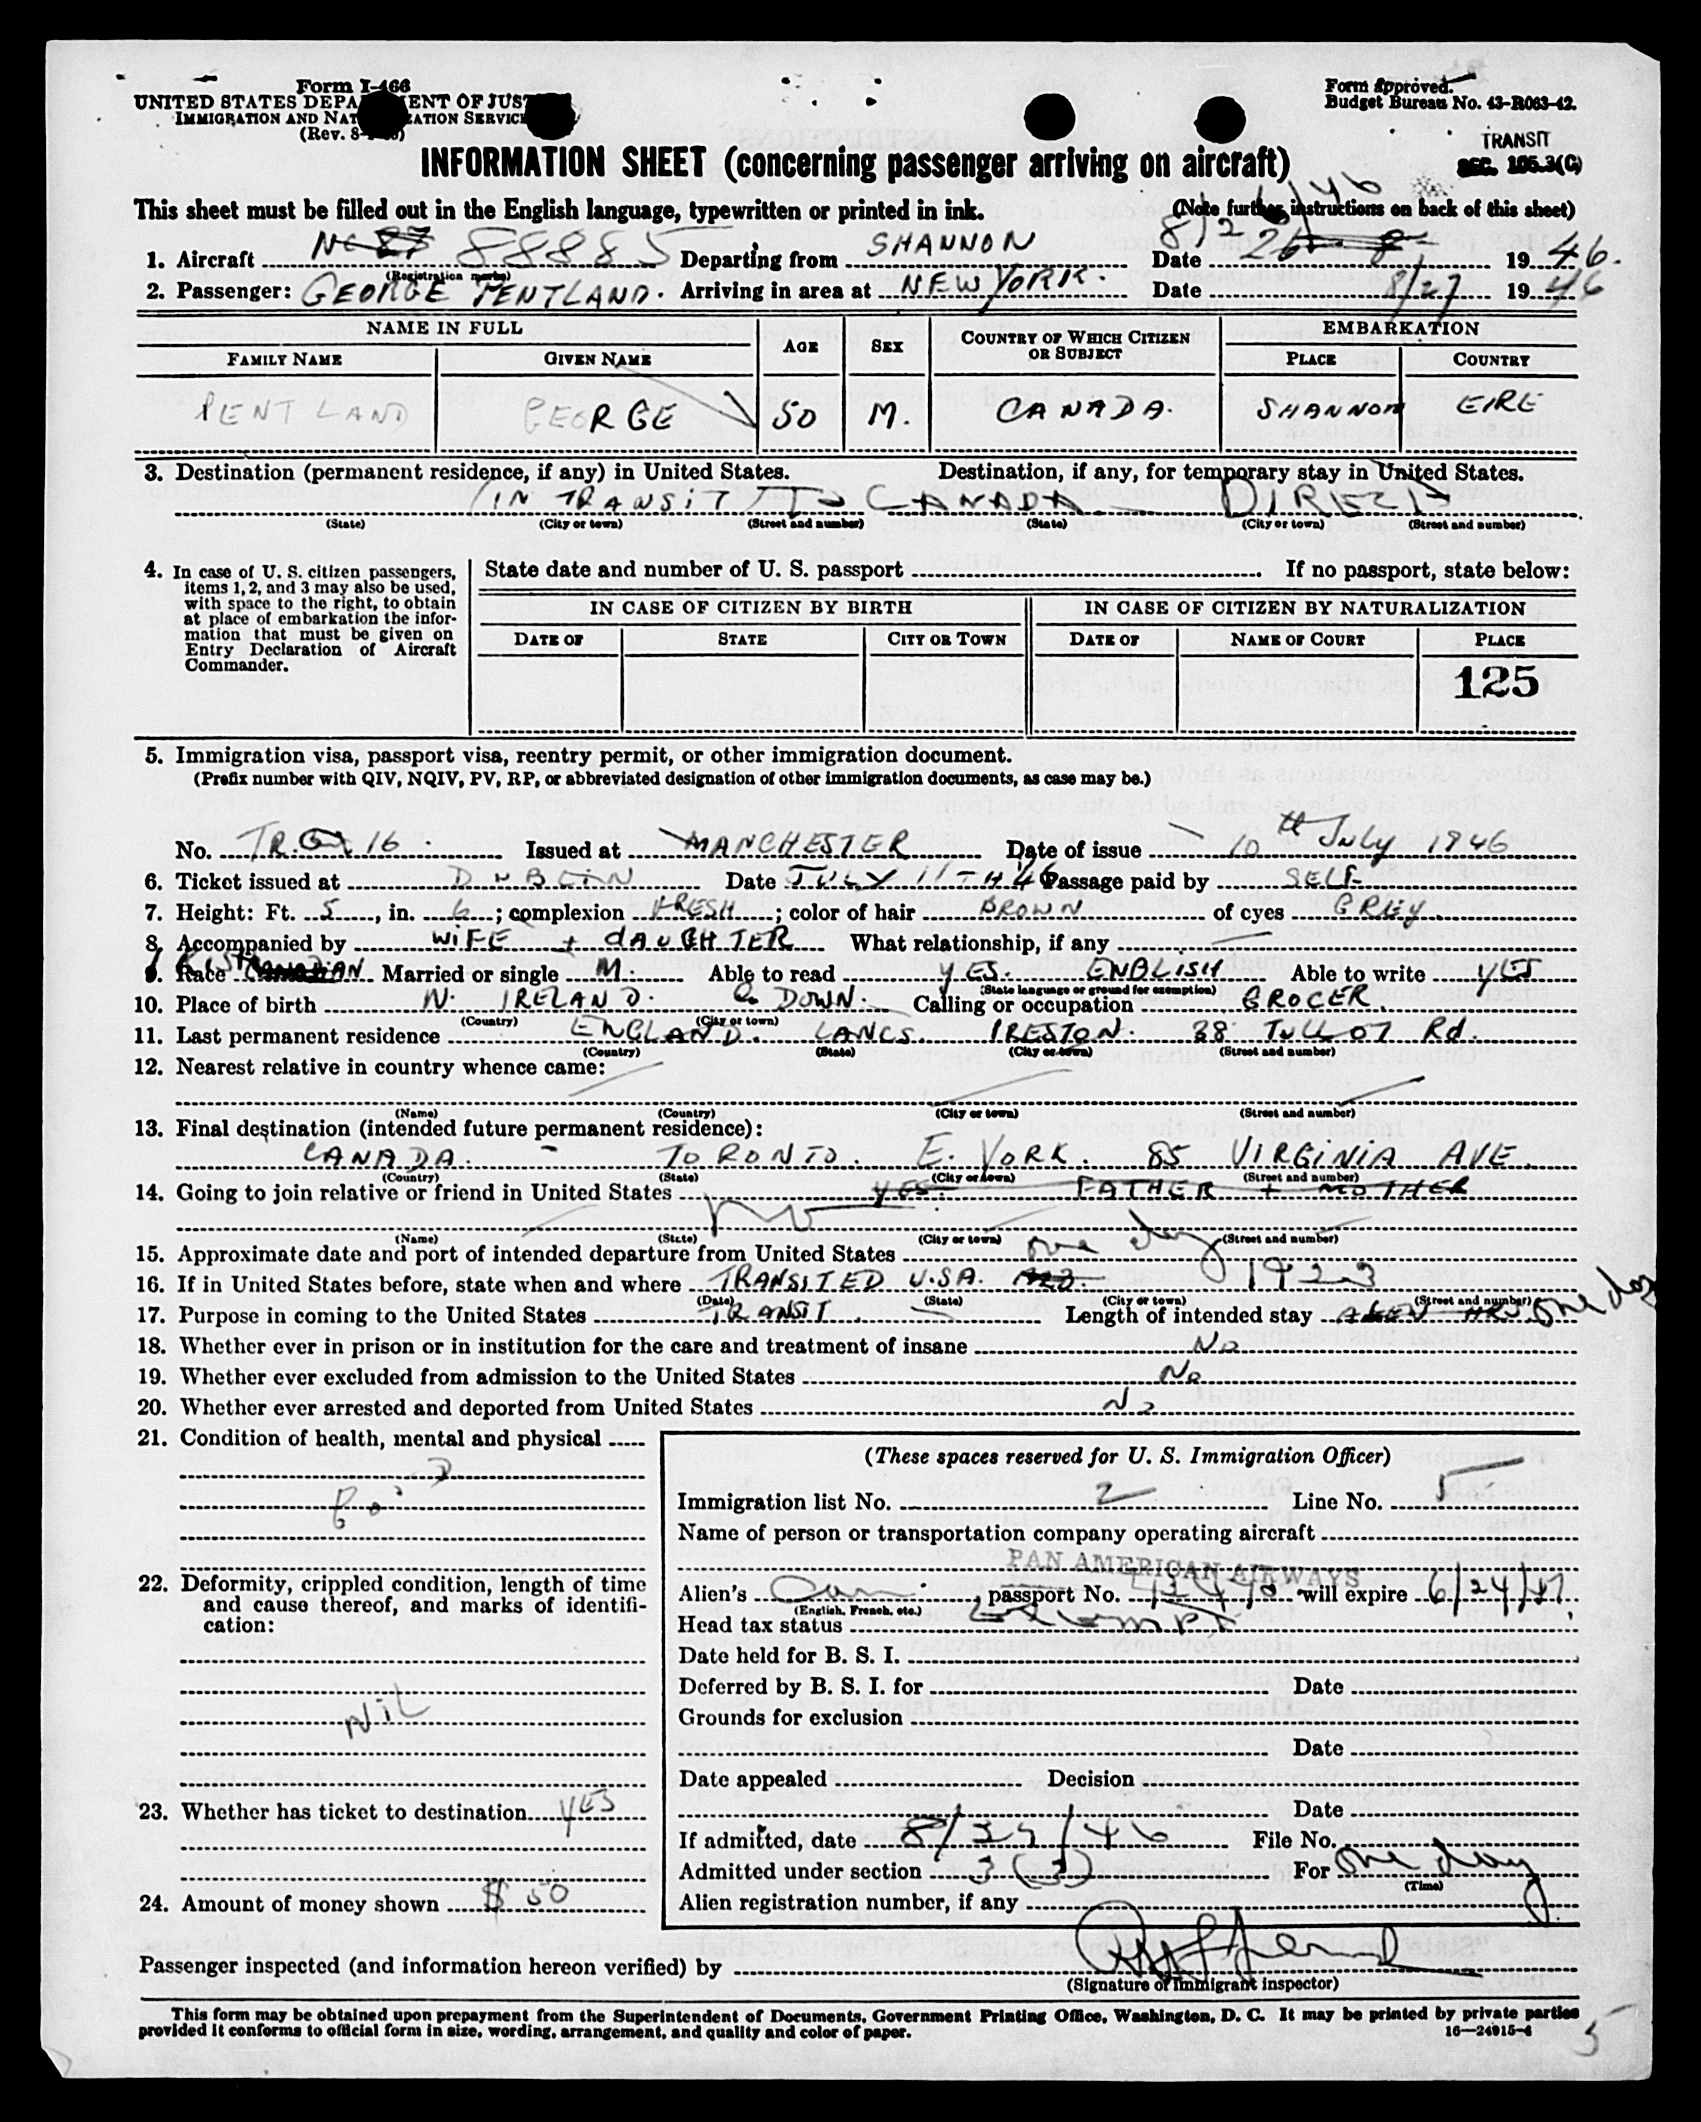 Form I-466
UNITED STATES DEPA ENT OF JUS
IMMIGRATION AND NAT ATION SERVICE
(Rev. 8-
Form Approved.
Budget Bureau No. 43-R063-42.
TRANSIT
SEC. 105.3(C)
INFORMATION SHEET (concerning passenger arriving on aircraft)
This sheet must be filled out in the English language, typewritten or printed in ink. (Note further instructions on back of this sheet)
1. Aircraft NC 88885 Departing from SHANNON Date 8/26/46 26-8- 1946.
(Registration marks)
2. Passenger: GEORGE PENTLAND. Arriving in area at NEW YORK. Date 8/27 1946
NAME IN FULL AGE SEX COUNTRY OF WHICH CITIZEN OR SUBJECT EMBARKATION
FAMILY NAME GIVEN NAME PLACE COUNTRY
PENTLAND GEORGE 50 M. CANADA. SHANNON EIRE
3. Destination (permanent residence, if any) in United States. Destination, if any, for temporary stay in United States.
IN TRANSIT TO CANADA DIRECT
(State) (City or town) (Street and number) (State) (City or town) (Street and number)
4. In case of U. S. citizen passengers, items 1, 2, and 3 may also be used, with space to the right, to obtain at place of embarkation the information that must be given on Entry Declaration of Aircraft Commander.
State date and number of U. S. passport If no passport, state below:
IN CASE OF CITIZEN BY BIRTH IN CASE OF CITIZEN BY NATURALIZATION
DATE OF STATE CITY OR TOWN DATE OF NAME OF COURT PLACE
125
5. Immigration visa, passport visa, reentry permit, or other immigration document.
(Prefix number with QIV, NQIV, PV, RP, or abbreviated designation of other immigration documents, as case may be.)
No. TR. 16 Issued at MANCHESTER Date of issue 10th July 1946
6. Ticket issued at DUBLIN Date JULY 11TH 46 Passage paid by SELF
7. Height: Ft. 5, in. 6; complexion FRESH; color of hair BROWN of eyes GREY
8. Accompanied by WIFE + DAUGHTER What relationship, if any
9. Race IRISH CANADIAN Married or single M. Able to read YES. ENGLISH Able to write YES
(State language or ground for exemption)
10. Place of birth N. IRELAND. Co DOWN. Calling or occupation GROCER.
(Country) (City or town)
11. Last permanent residence ENGLAND. LANCS. PRESTON. 38 Rd.
(Country) (State) (City or town) (Street and number)
12. Nearest relative in country whence came:
(Name) (Country) (City or town) (Street and number)
13. Final destination (intended future permanent residence):
CANADA. - TORONTO. E. YORK. 85 VIRGINIA AVE.
(Country) (State) (City or town) (Street and number)
14. Going to join relative or friend in United States YES. FATHER + MOTHER
No
(Name) (State) (City or town) (Street and number)
15. Approximate date and port of intended departure from United States one day
16. If in United States before, state when and where TRANSITED U.S.A. 1923
(Date) (State) (City or town) (Street and number)
17. Purpose in coming to the United States TRANSIT Length of intended stay A FEW HRS one day
18. Whether ever in prison or in institution for the care and treatment of insane No
19. Whether ever excluded from admission to the United States No
20. Whether ever arrested and deported from United States No
21. Condition of health, mental and physical
Good
22. Deformity, crippled condition, length of time and cause thereof, and marks of identification:
NiL
23. Whether has ticket to destination YES
24. Amount of money shown $ 50
(These spaces reserved for U. S. Immigration Officer)
Immigration list No. 2 Line No. 5
Name of person or transportation company operating aircraft
PAN AMERICAN AIRWAYS
Alien's Can. passport No. will expire 6/24/47
(English, French, etc.)
Head tax status exempt
Date held for B. S. I.
Deferred by B. S. I. for Date
Grounds for exclusion
Date
Date appealed Decision
Date
If admitted, date 8/27/46 File No.
Admitted under section 3 (3) For one day
(Time)
Alien registration number, if any
Passenger inspected (and information hereon verified) by
(Signature of Immigrant inspector)
This form may be obtained upon prepayment from the Superintendent of Documents, Government Printing Office, Washington, D. C. It may be printed by private parties
provided it conforms to official form in size, wording, arrangement, and quality and color of paper. 16—24915-4
5